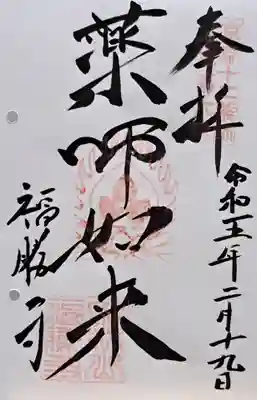 奉拝
令和五年二月十九日
薬師如来
福勝寺